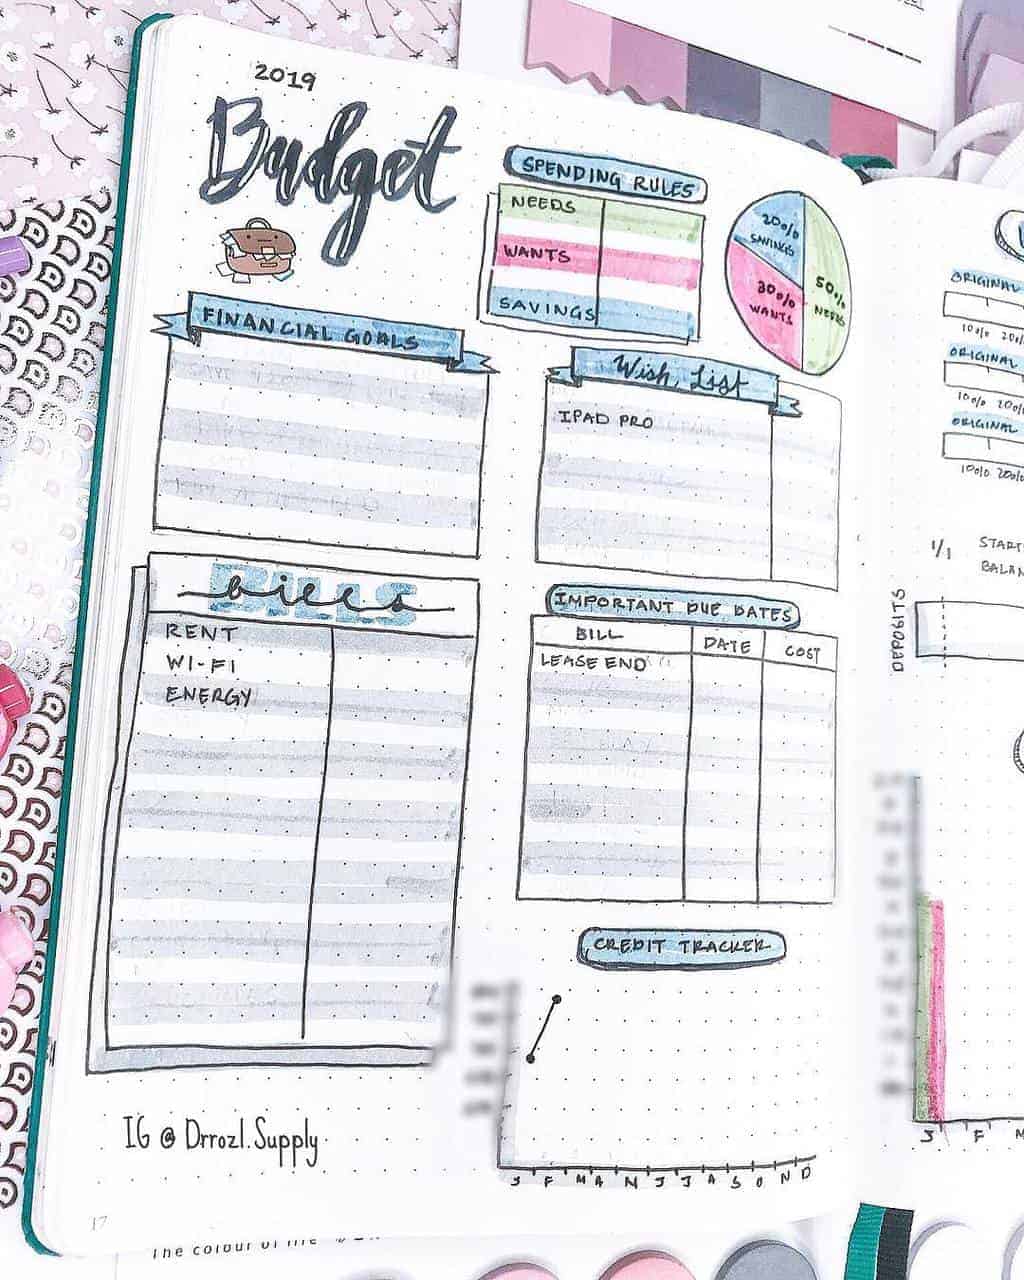 2019
Budget
SPENDING RULES
NEEDS
WANTS
SAVINGS
20%
SAVINGS
50%
NEEDS
30%
WANTS
FINANCIAL GOALS
Wish List
IPAD PRO
BILLS
bills
RENT
WI-FI
ENERGY
IMPORTANT DUE DATES
BILL DATE COST
LEASE END
CREDIT TRACKER
J F M A M J J A S O N D
IG @ Drrozl.Supply
17
The colour of
ORIGINAL
10% 20%
ORIGINAL
10% 20%
ORIGINAL
10% 20%
1/1
DEPOSITS
J F M